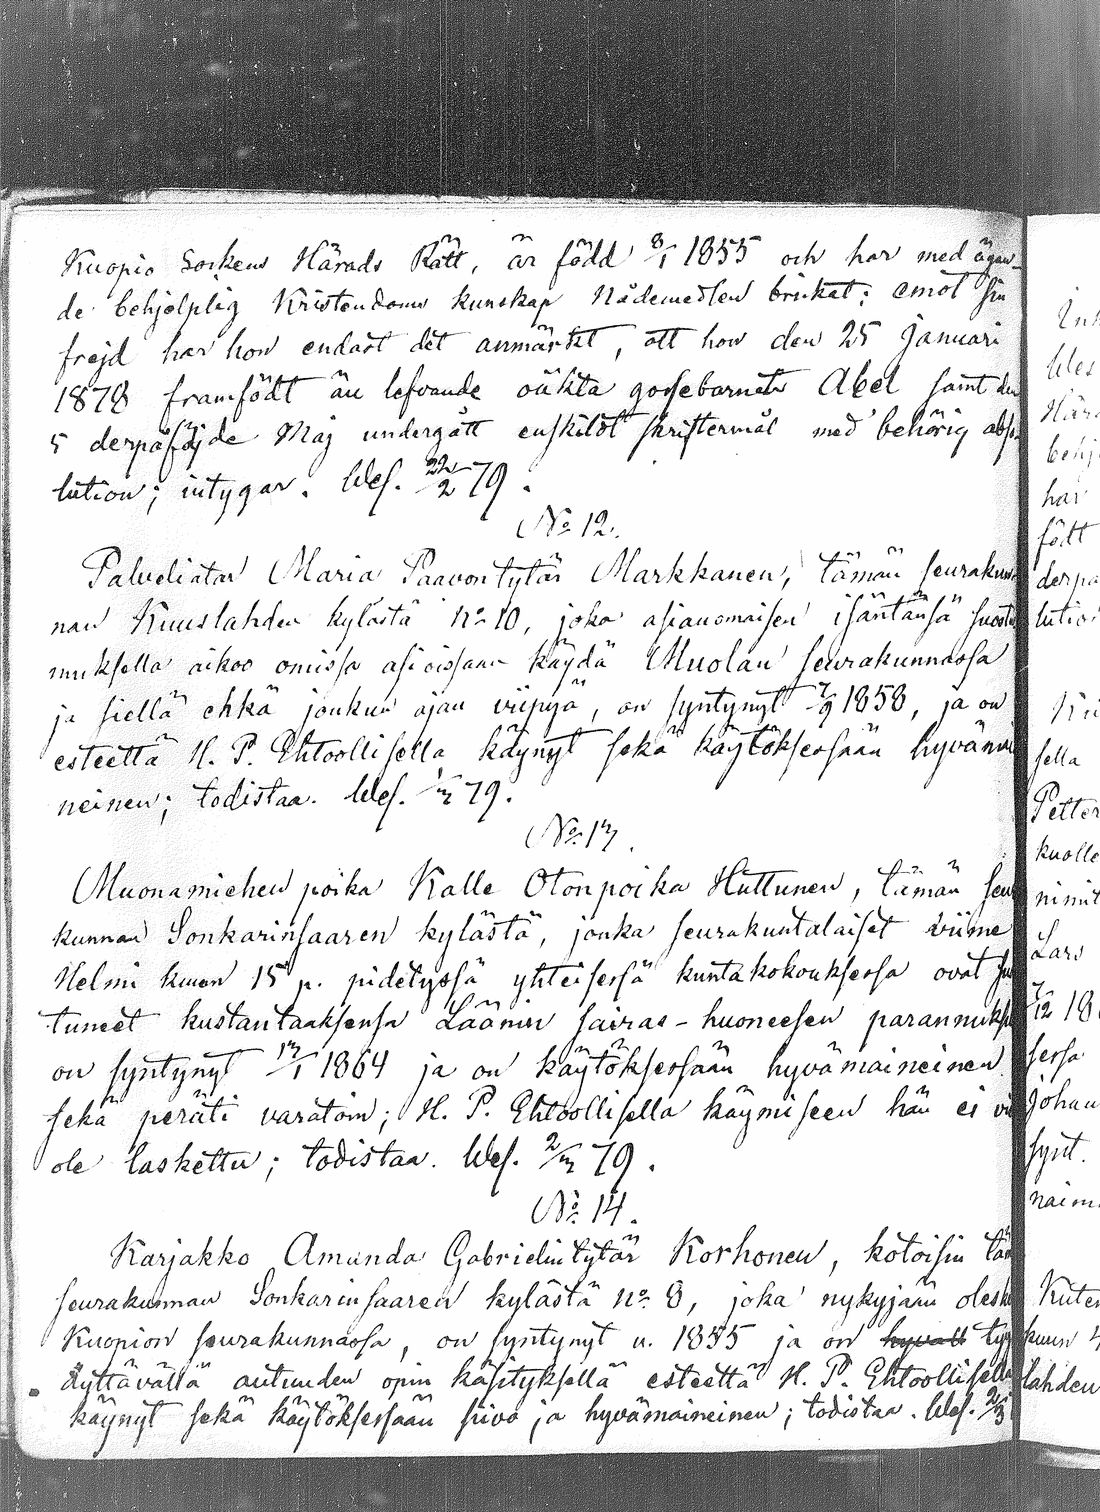 Kuopio Sockens Härads Rätt, är född 8/1 1855 och har med ägan-
de behjelplig Kristendoms kunskap Nådemedlen brukat; emot sin
frejd har hon endast det anmärkt, att hon den 25 Januari
1878 framfödt än lefvande oäkta gossebarnet Abel samt den
5 derpåföljde Maj undergått enskildt skriftermål med behörig abso
lution; intygar. Wes. 22/2 79.
No 12.
Palveliatar Maria Paavontytär Markkanen, tämän seurakun
nan Kuuslahden kylästä no 10, joka asianomaisen isäntänsä suostu
muksella aikoo omissa asioissaan käydä Muolan seurakunnassa
ja siellä ehkä jonkun ajan viipyä, on syntynyt 7/9 1858, ja on
esteettä H. P. Ehtoollisella käynyt sekä käytöksessään hyvämai
neinen; todistaa. Wes. 1/3 79.
No 13.
Muonamiehen poika Kalle Otonpoika Huttunen, tämän seu
kunnan Sonkarinsaaren kylästä, jonka seurakuntalaiset viime
Helmi kuun 15 p. pidetyssä yhteisessä kuntakokouksessa ovat
tuneet kustantaaksensa Läänin sairas-huoneesen parannuks
on syntynyt 13/1 1864 ja on käytöksessään hyvämaineinen
sekä peräti varatoin; H. P. Ehtoollisella käymiseen hän ei vi
ole laskettu; todistaa. Wes. 2/3 79.
No 14.
Karjakko Amanda Gabrielintytär Korhonen, kotoisin tä
seurakunnan Sonkarinsaaren kylästä no 8, joka nykyjään olesk
Kuopion seurakunnassa, on syntynyt v. 1855 ja on hyvällä tyy
dyttävällä autuuden opin käsityksellä esteettä H. P. Ehtoollisella
käynyt sekä käytöksessään siivo ja hyvämaineinen; todistaa. Wes. 2/3
har
födt
derpå
lution
sella
Petter
kuolle
nimit
Lars
7/12 18
sessa
Johan
synt.
naim
kuun
lahden